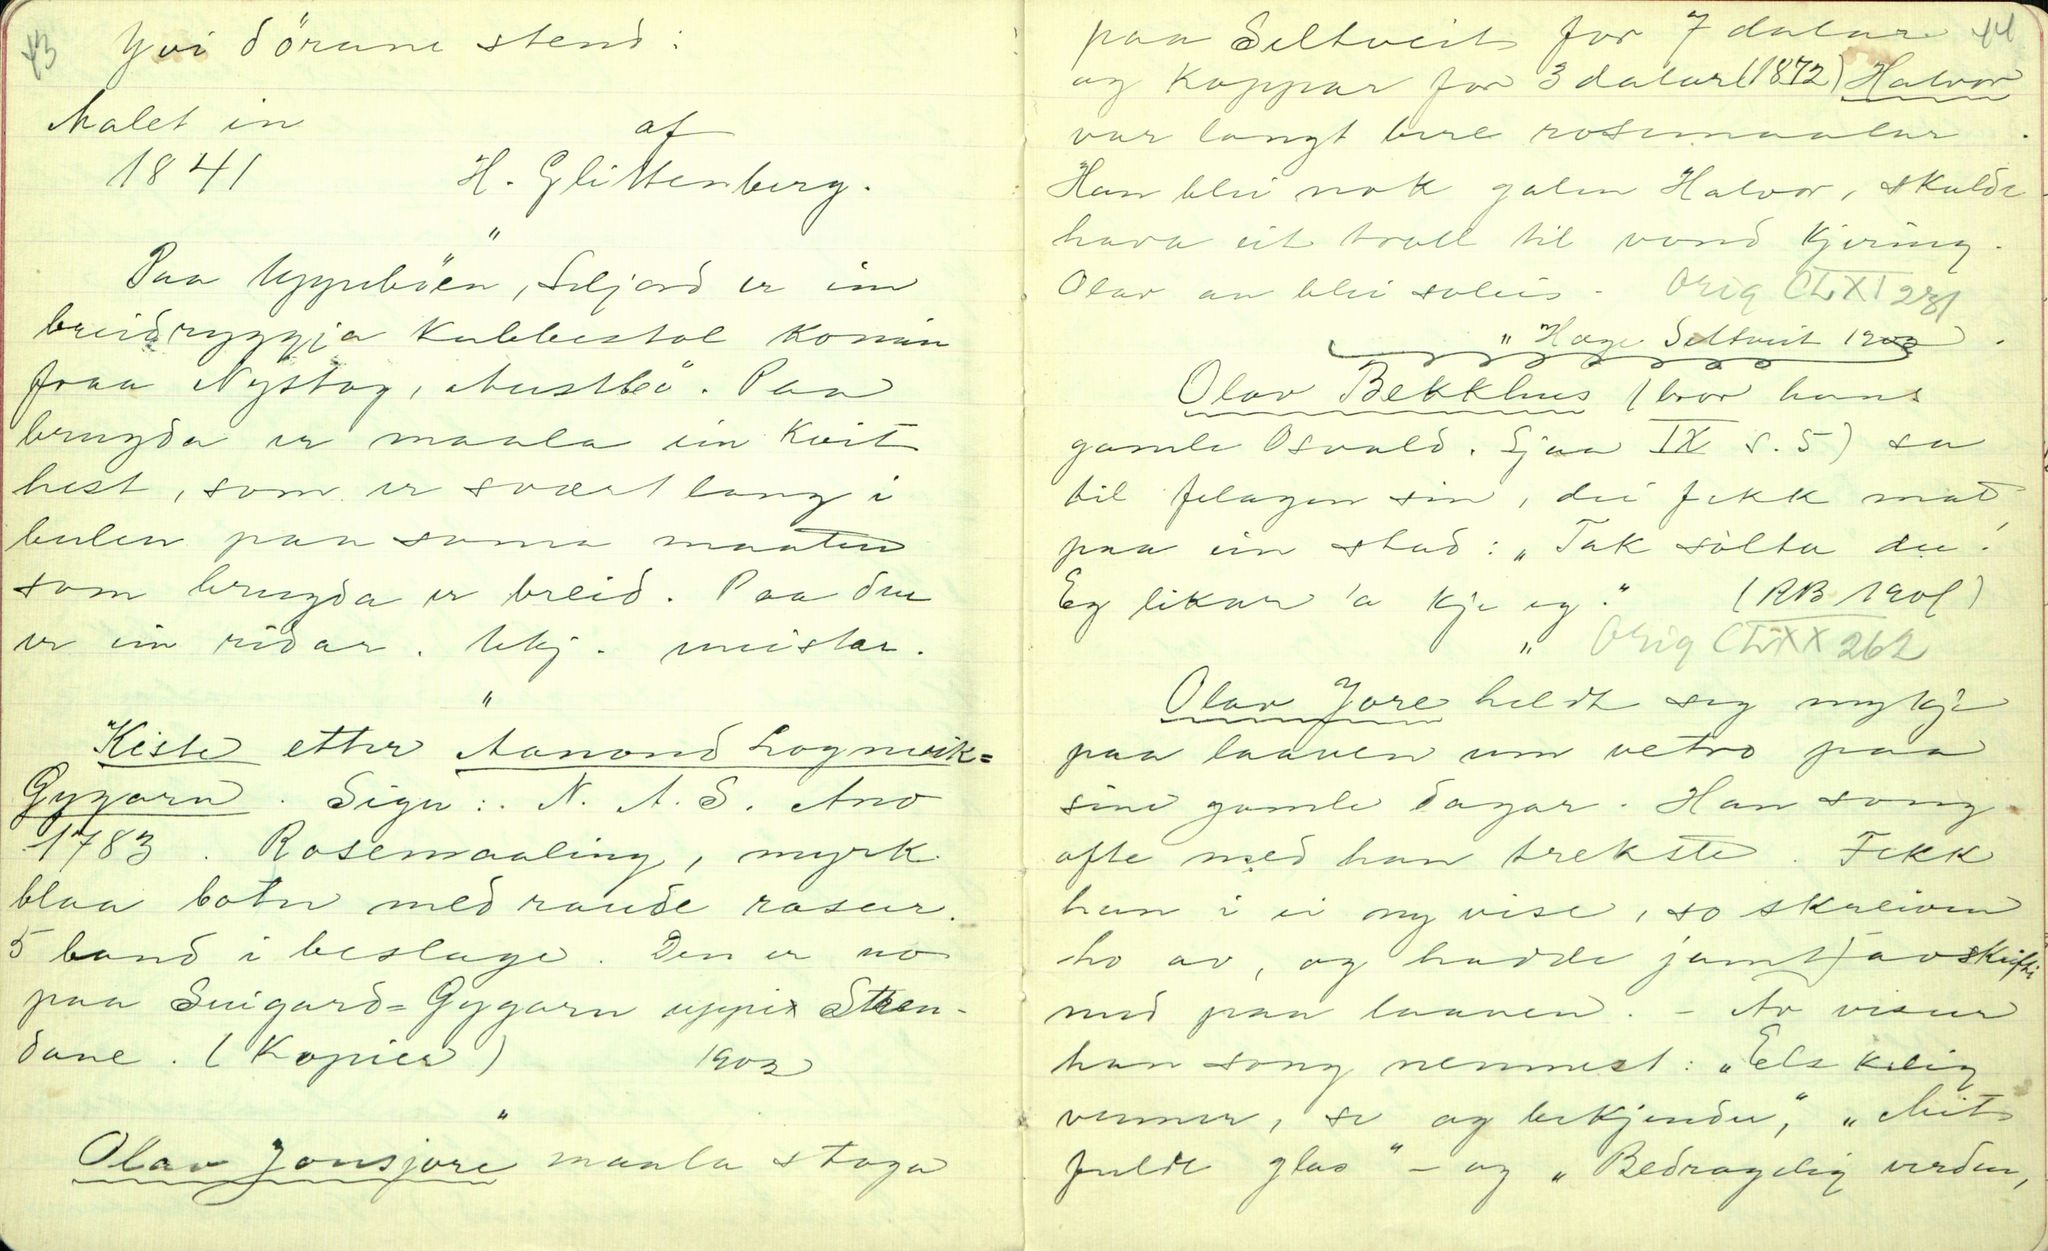 43
Yvi dörane stend:
Malet in
af
1841 H. Glittenberg.
"
Paa Uppeböen, Seljord er ein
breidryggja kubbestol komin
fraa Nystog, Austbö. Paa
brugda er maala ein kvit
hest, som er svært lang i
bulen paa sama maaten
som brugda er breid. Paa den
er ein ridar. Ukj. meistar.
"
Kiste etter Aanond Lognvik=
Gygarn. Sign:. N. A. S. Ano
1783. Rosemaaling, myrk
blaa botn med raude rosur.
5 band i beslage. Den er no
paa Snigard=Gygarn uppi Sten-
dane. (Kopier) 1903
"
Olav Jonsjore maala stoga
44
paa Seltveit for 7 dalar
og koppar for 3 dalar (1872) Halvor
var langt bere rosemaalar.
Han blei nok galen Halvor, skulde
hava eit troll til vond kjering.
Olav an blei soleis. Orig CLXI 281
" Hæge Seltveit 1903.
Olav Bekkhus (bror hans
gamle Osvald. Sjaa IX s. 5) sa
til felagen sin, dei fekk mat
paa ein stad: „Tak sölta du!
Eg likar 'a kje eg." (RB 1901)
" Orig CLXX 262
Olav Jore heldt seg mykje
paa laaven um vetro paa
sine gamle dagar. Han song
ofte med han trekste. Fekk
han i ei ny vise, so skreiven
ho av, og hadde jamt avskrifti
med paa laaven. - Av visur
han song nemnest: „Elskelig
venner, se og bekjender," „Mit
fulde glas" - og „Bedragelig verden,